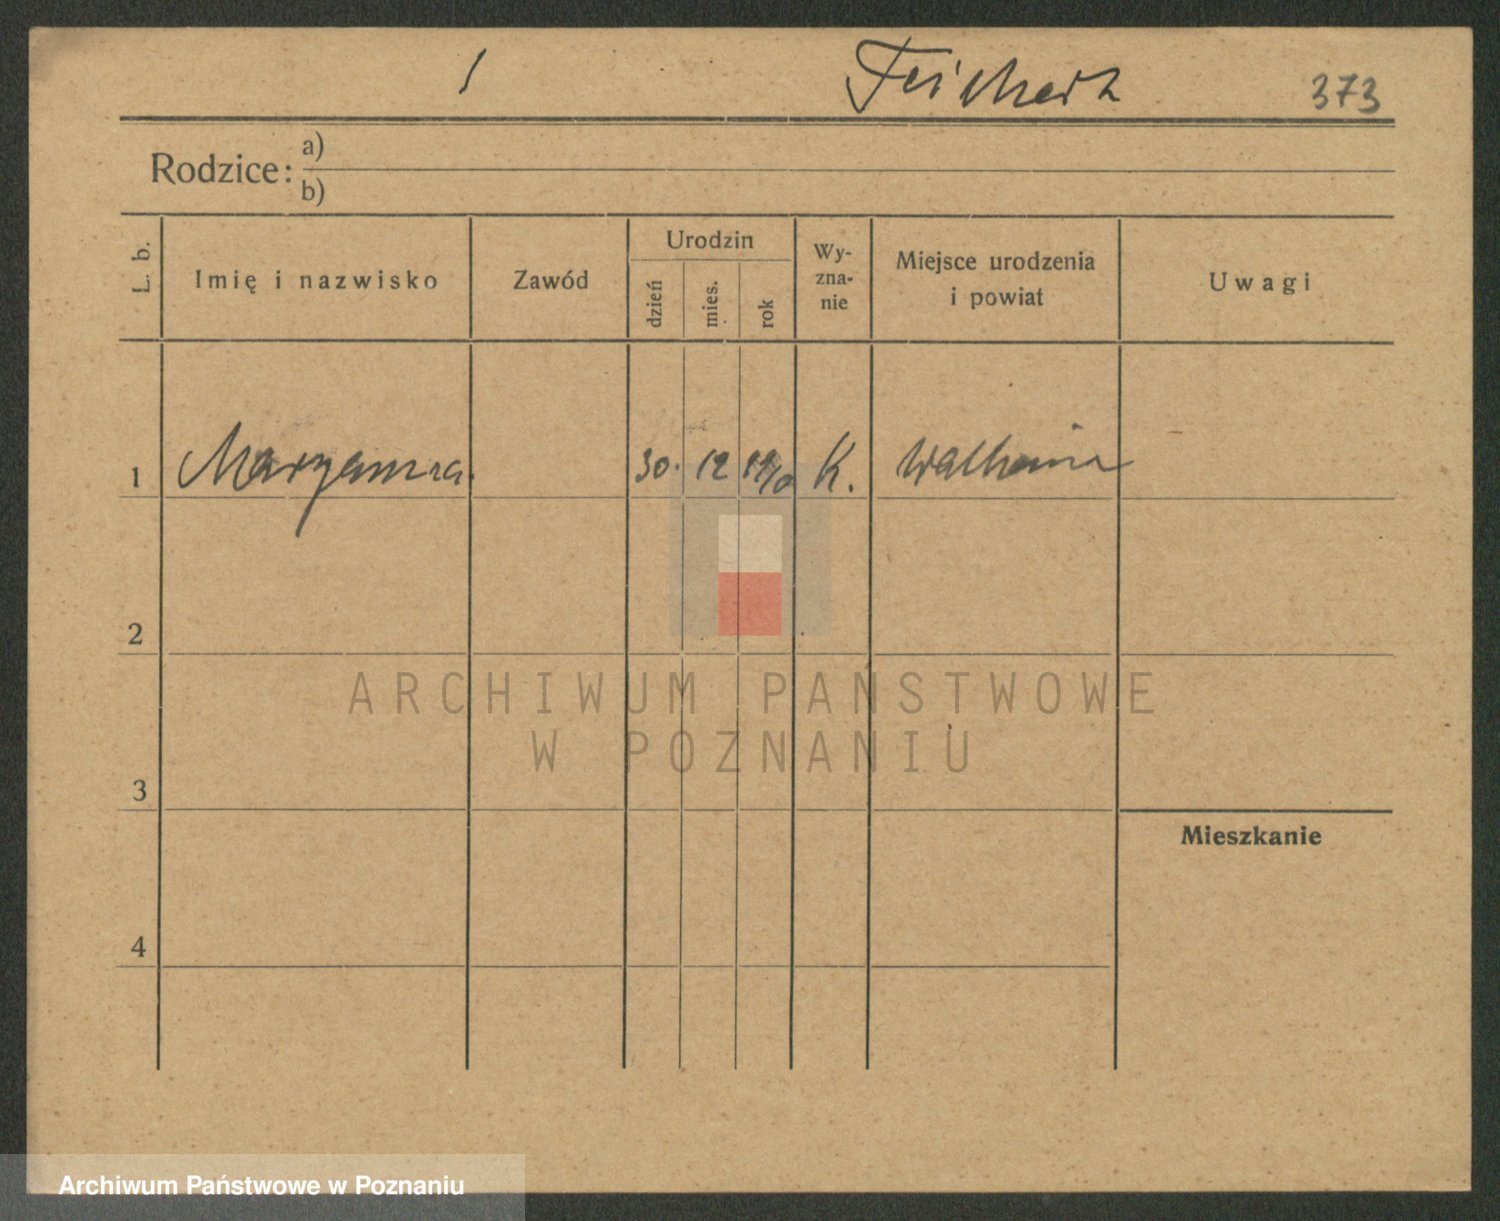 Feichert 373
Rodzice: a)
b)
L. b. Imię i nazwisko Zawód Urodzin dzień mies. rok Wy-zna-nie Miejsce urodzenia i powiat Uwagi
1 Maryanna. 30. 12 1910 K.
2
3
Mieszkanie
4
ARCHIWUM PAŃSTWOWE
W POZNANIU
Archiwum Państwowe w Poznaniu